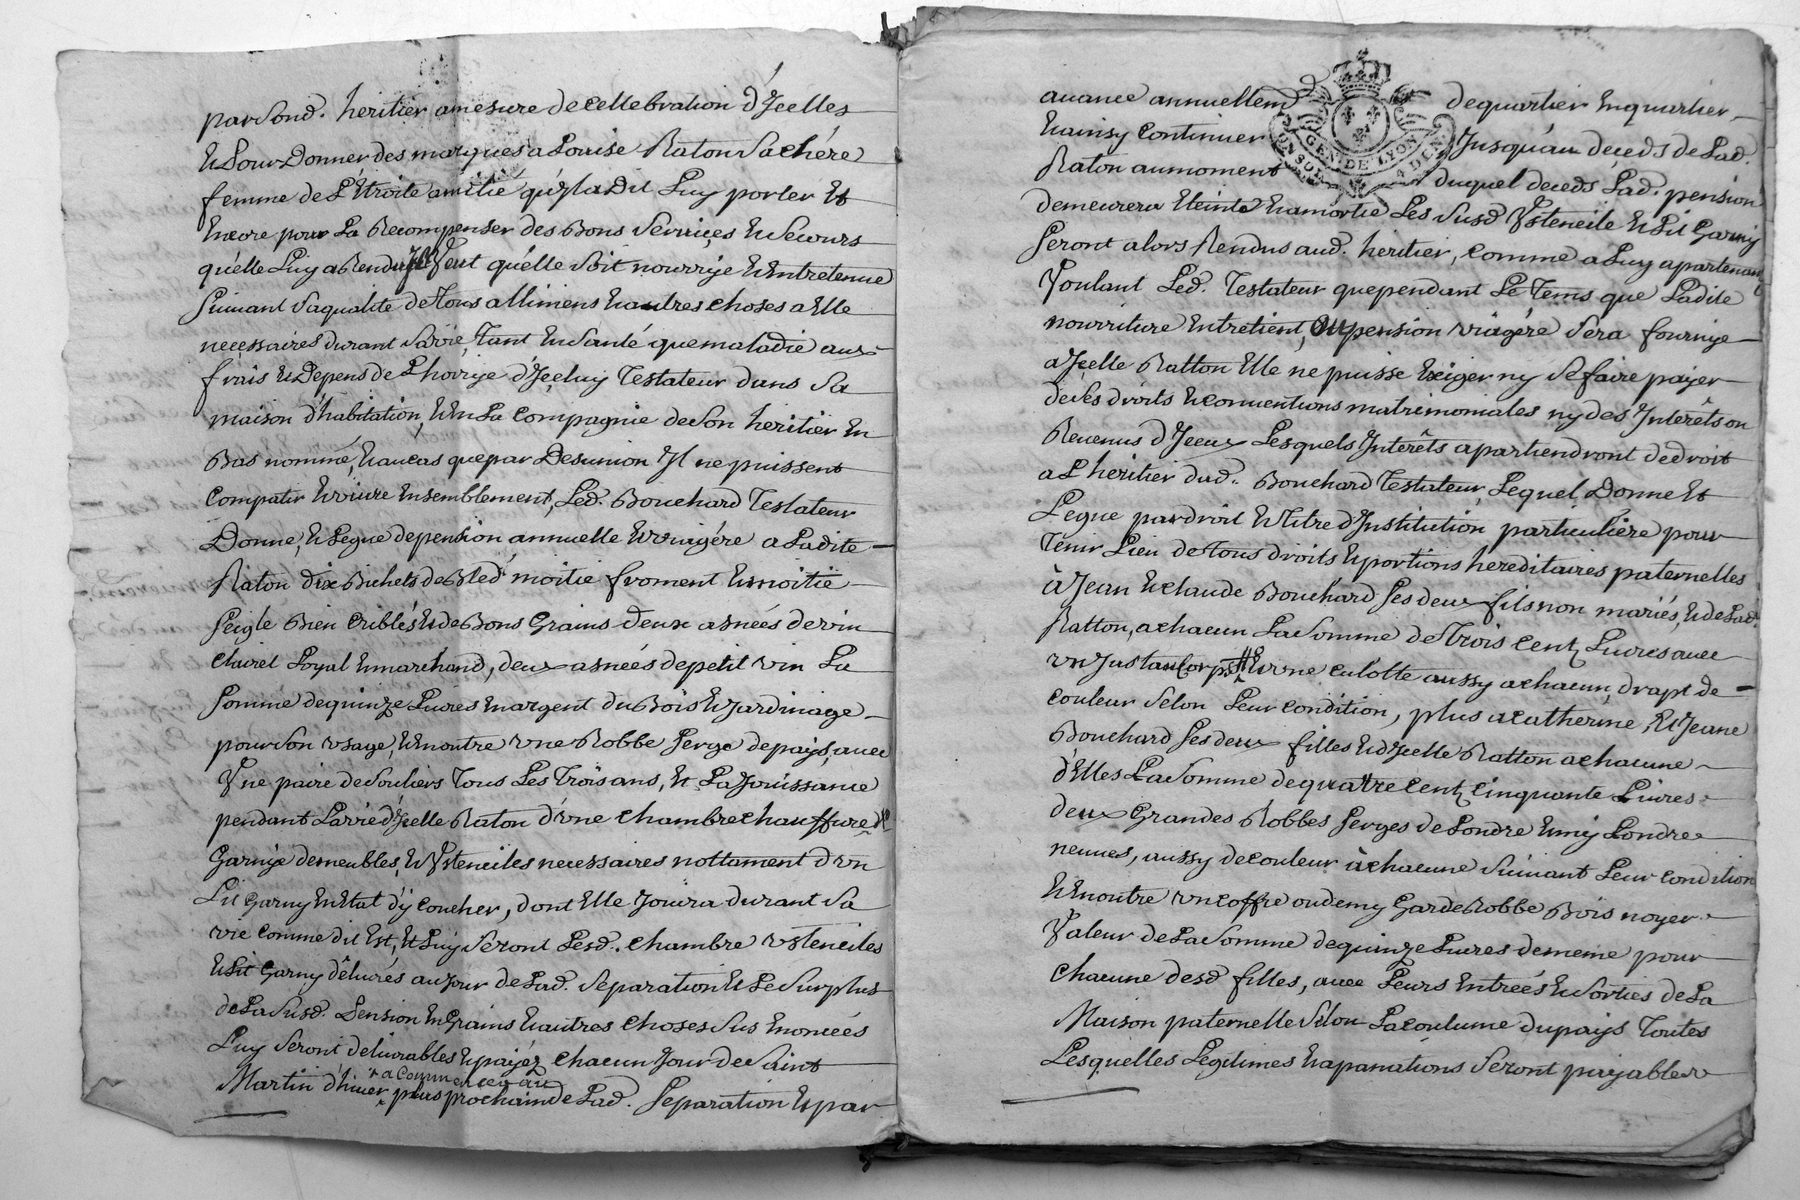 par Sond. heritier amesure de cellebration d'Jcelles
Et Pour Donner des marques a Louise Raton Sa chére
femme de L'étroite amitié qu'jl adit Luy porter Et
Encore pour La Recompenser des Bons Services Et Secours
qu'elle Luy a Rendu Jl Veut qu'elle Soit nourrye Et Entretenue
Suivant Sa qualite de Tous allimens Et autres choses a Elle
necessaires durant Sa vie, Tant En Santé que maladie aux
frais Et Depens de L'hoirye d'Jceluy Testateur dans Sa
maison d'habitation, Et En La Compagnie de Son heritier En
Bas nommé, Et au cas que par Desunion Jl ne puissent
Compatir Et vivre Ensemblement, Led. Bouchard Testateur
Donne, Et Legue de pension annuelle Et viagére a Ladite
Raton dix Bichets de Bled moitié froment Et moitié
Seigle Bien Criblés Et de Bons Grains deux asnées de vin
Clairet Loyal Et marchand, deux asnées de petit vin La
Somme de quinze Livres En argent du Bois Et Jardinage
pour Son usage, Et En outre Vne Robbe Serge de pays, avec
Vne paire de Souliers Tous Les Trois ans, Et La Jouissance
pendant La vie d'Jcelle Raton d'vne Chambre Chauffure Et
Garnye de meubles, Et Vstenciles necessaires nottament d'vn
Lit Garny En Etat d'y Coucher, dont Elle Jouira durant Sa
vie Comme dit Est, Et Luy Seront Lesd. Chambre vstenciles
Et Lit Garny délivrés au Jour de Lad. Separation Et Le Surplus
de La Susd. Pension En Grains Et autres Choses Sus Enoncées
Luy Seront delivrables Et payéz Chacun Jour de Saint
+ a Commencer au
Martin d'hiver + plus prochain de Lad. Separation Et par
avance annuellemt de quartier En quartier
Et ainsy Continuer Jusqu'au decedz de Lad.
GEN. DE LYON
Raton au moment duquel deceds Lad. pension
demeurera Eteinte Et amortie Les Susd Vstencile Et Lit Garny
Seront alors Rendus aud. heritier, Comme a Luy apartenant
Voulant Led. Testateur que pendant Le Tems que Ladite
nourriture Entretient, Ou pension viagére Sera fournye
a Jcelle Ratton Elle ne puisse Exiger ny Se faire payer
de Ses droits Et Conventions matrimoniales ny des Jnterêts ou
Revenus d'Jceux Lesquels Jnterêts apartiendront de droit
a L'heritier dud. Bouchard Testateur, Lequel Donne Et
Legue par droit Et Titre d'Jnstitution particuliére pour
Tenir Lieu de Tous droits Et portions hereditaires paternelles
à Jean Et Claude Bouchard Ses deux fils non mariés, Et de Lad.
Ratton, a chacun La Somme de Trois Centz Livres avec
vn Justaucorps Et vne Culotte aussy a chacun, drapt de
couleur Selon Leur Condition, plus a Catherine, Et Jeane
Bouchard Ses deux filles Et d'Jcelle Ratton a chacune
d'Elles La Somme de quattre Centz Cinquante Livres
deux Grandes Robbes Serges de Londre Et my Londre
neuves, aussy de Couleur à chacune Suivant Leur Condition
Et En outre vn Coffre ou demy Garde Robbe Bois noyer
Valeur de La Somme de quinze Livres de meme pour
Chacune desd filles, avec Leurs Entrées Et Sorties de La
Maison paternelle Selon La Coutume du pays Toutes
Lesquelles Legitimes Et apanations Seront payables